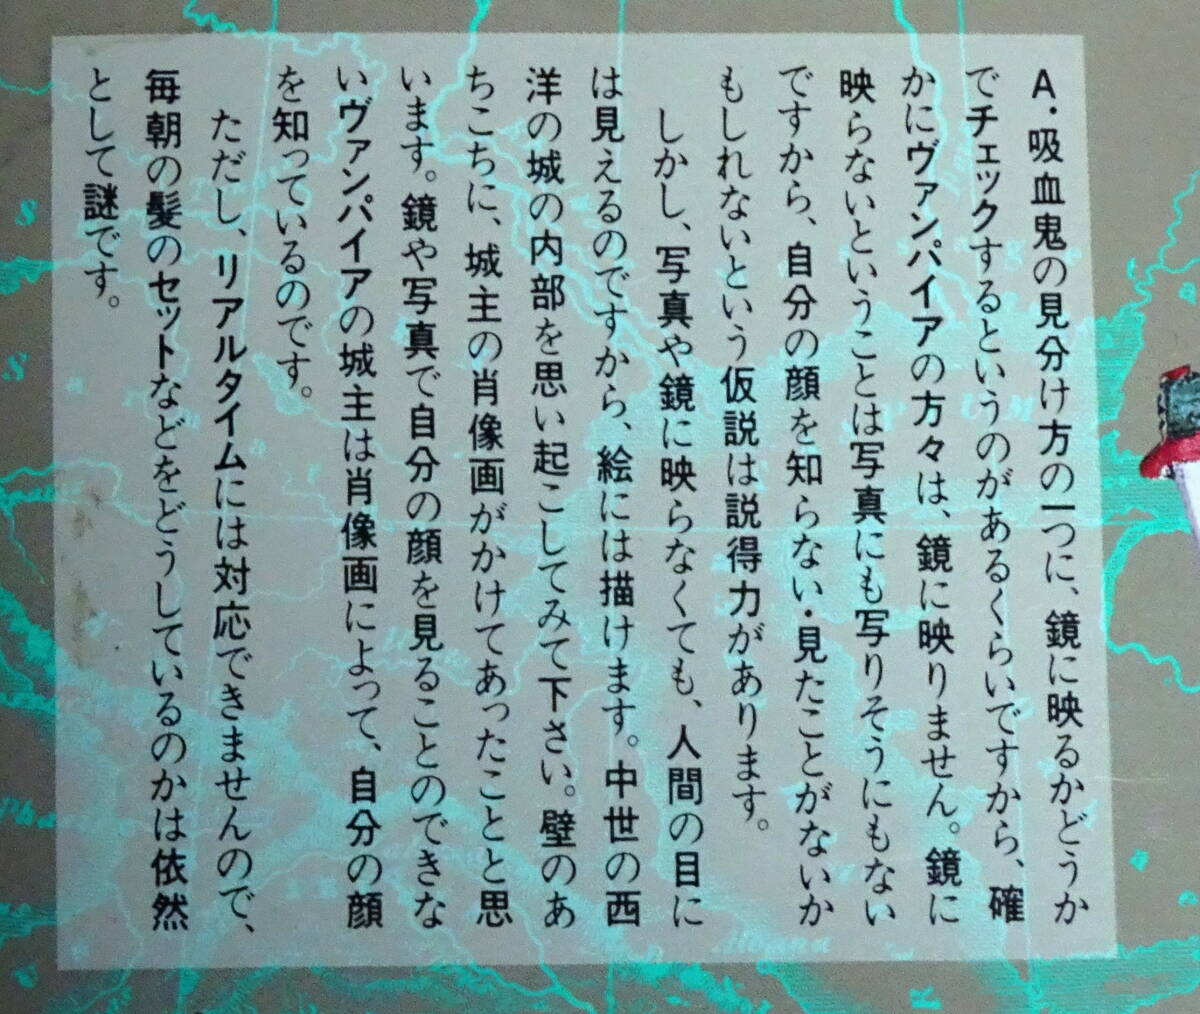 A・吸血鬼の見分け方の一つに、鏡に映るかどうか
でチェックするというのがあるくらいですから、確
かにヴァンパイアの方々は、鏡に映りません。鏡に
映らないということは写真にも写りそうにもない
ですから、自分の顔を知らない・見たことがないか
もしれないという仮説は説得力があります。
しかし、写真や鏡に映らなくても、人間の目に
は見えるのですから、絵には描けます。中世の西
洋の城の内部を思い起こしてみて下さい。壁のあ
ちこちに、城主の肖像画がかけてあったことと思
います。鏡や写真で自分の顔を見ることのできな
いヴァンパイアの城主は肖像画によって、自分の顔
を知っているのです。
ただし、リアルタイムには対応できませんので、
毎朝の髪のセットなどをどうしているのかは依然
として謎です。